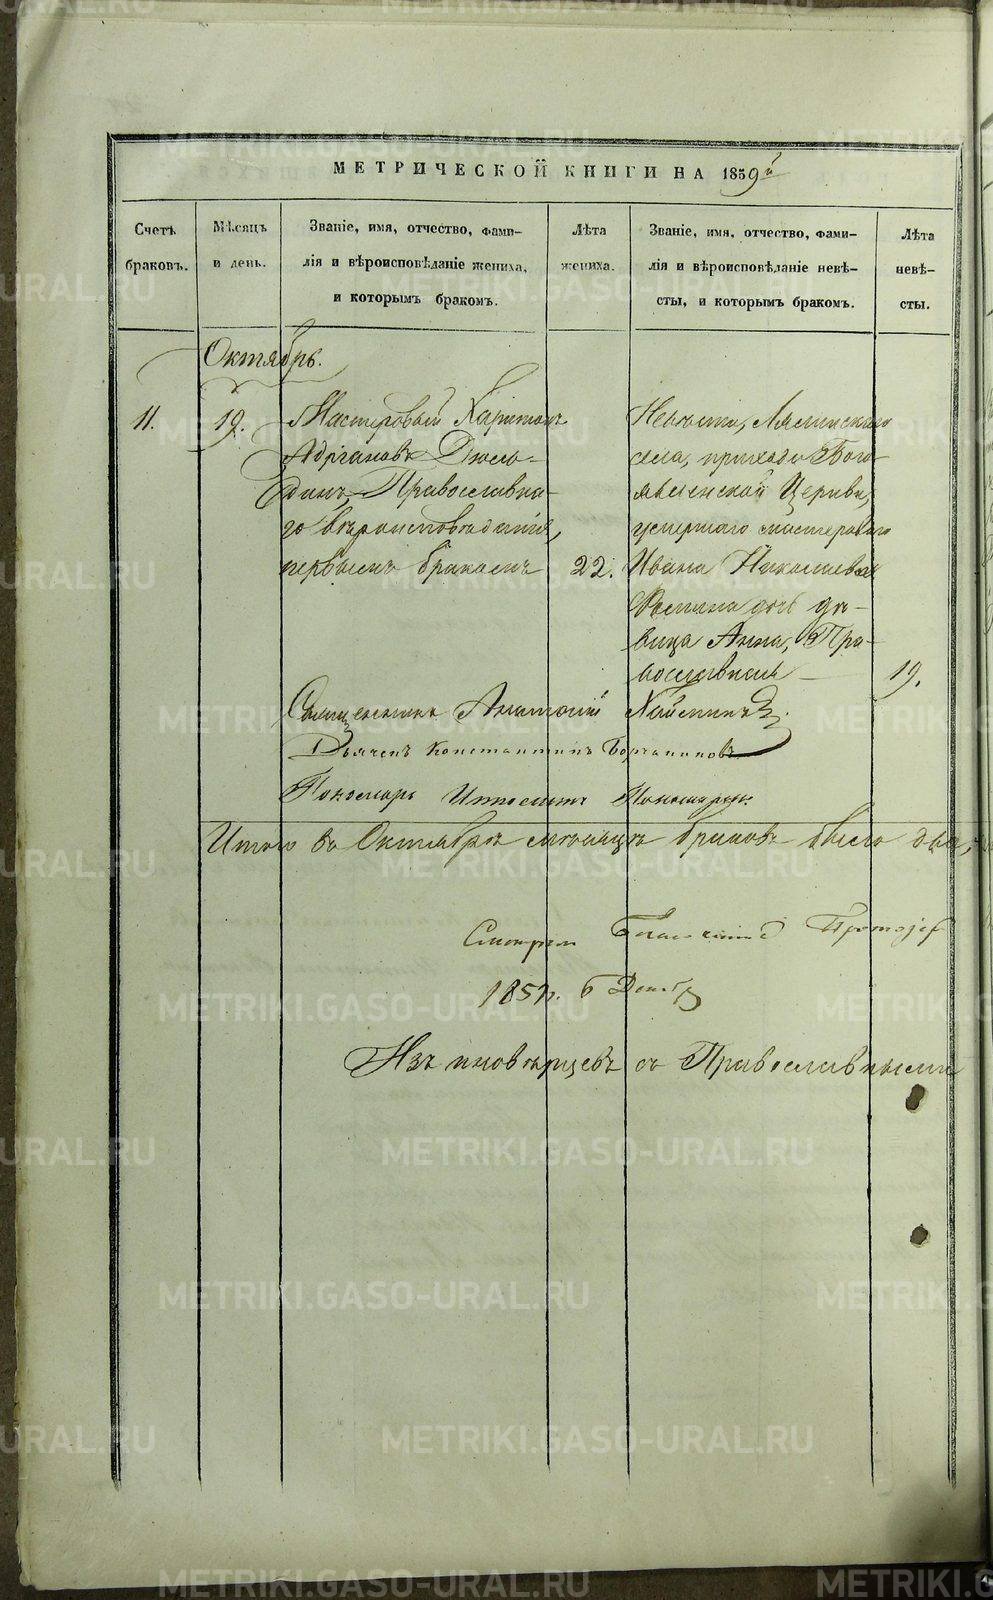 МЕТРИЧЕСКОЙ КНИГИ НА 1859й
Счетъ
браковъ.
Мѣсяцъ
и день.
Званіе, имя, отчество, фами-
лія и вѣроисповѣданіе жениха,
и которымъ бракомъ.
Лѣта
жениха.
Званіе, имя, отчество, фами-
лія и вѣроисповѣданіе невѣ-
сты, и которымъ бракомъ.
Лѣта
невѣ-
сты.
Октябрь.
11.
19.
Мастеровый Харитонъ
Адріановъ
Православна-
го вѣроисповѣданія,
первымъ бракомъ
22.
Невѣста, Лялинскаго
села, прихода Бого-
явленской Церкви,
умершаго мастероваго
Ивана Николаева
дочь дѣ-
вица Анна, Пра-
вославная
19.
Священникъ Анатолій
Дьячекъ Константинъ
Пономарь Ипполитъ Пономаревъ
Итого въ Октябрѣ мѣсяцѣ браковъ было два,
Смотрѣлъ Благочинный Протоіер
1859 г. 6 Декабр
Изъ иновѣрцевъ съ Православными
METRIKI.GASO-URAL.RU